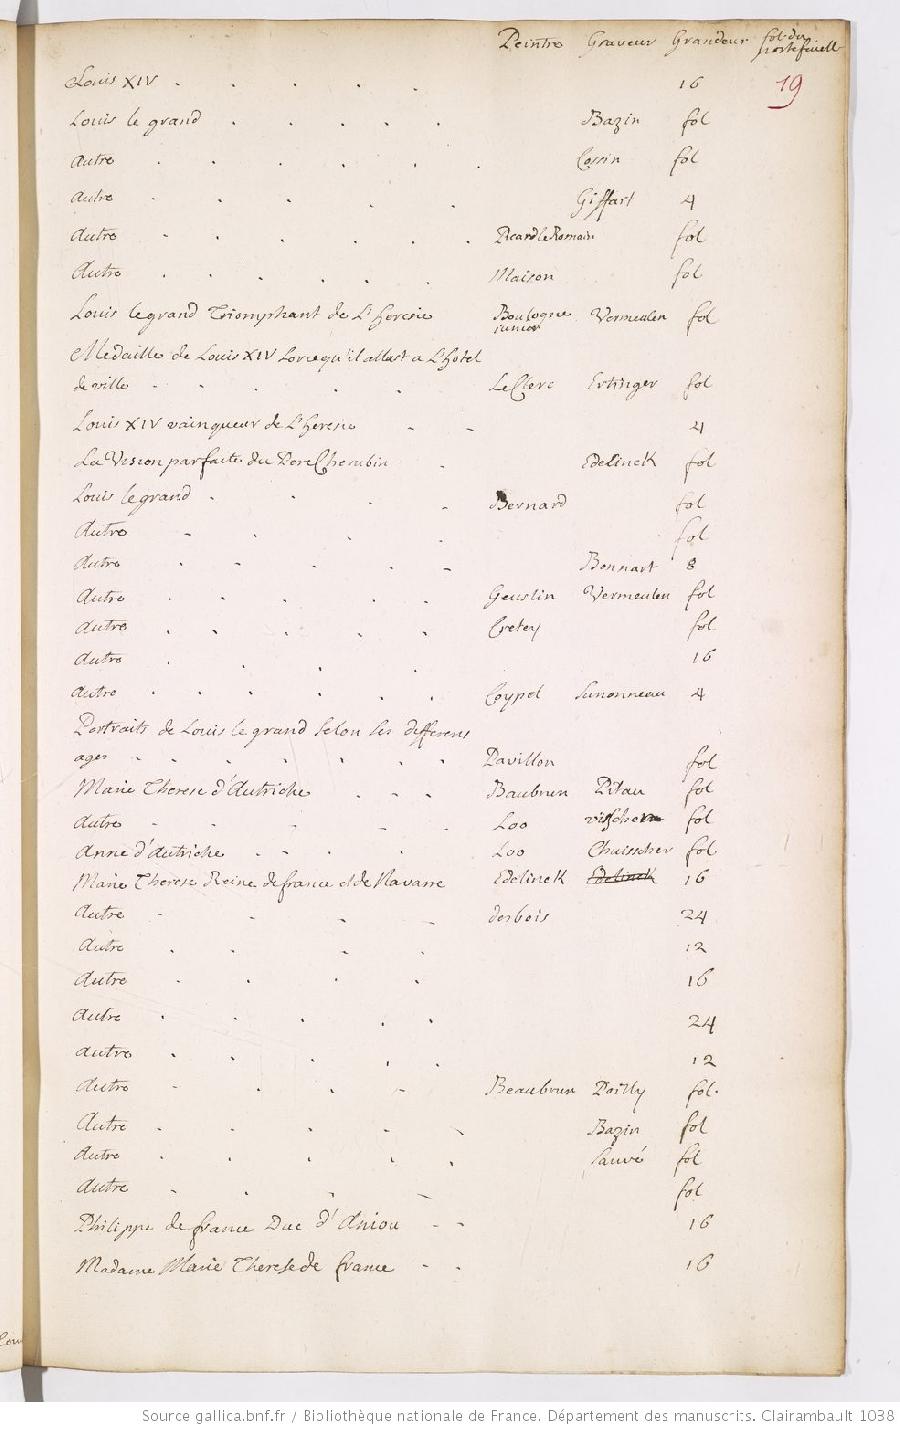 Peintre Graveur Grandeur fol. du
portefeuille
Louis XIV . . . . . 16 19
Louis le grand . . . . . Bazin fol
autre . . . . . . Cossin fol
autre . . . . . Giffart 4
autre . . . . . . Picard le Romain fol
Autre . . . . . . Maison fol
Louis le grand Triomphant de L'heresie Boulogne junior Vermeulen fol
Medaille de Louis XIV Lorcequ'il allast a L'hotel
de ville - . . . . Le Clerc Ertinger fol
Louis XIV vainqueur de L'heresie - - 4
La Vision parfaite du Pere Cherubin . Edelinck fol
Louis le grand . . . . Bernard fol
Autre - . . . fol
Autre . - . . - Bonnart 8
Autre . . . . . Geuslin Vermeulen fol
Autre . . . . . Cretey fol
Autre . . . . 16
autre . . . . . . Coypel Simonneau 4
Portraits de Louis le grand selon ses differens
ages - . . . . . . Pavillon fol
Marie Therese d'Autriche . . . Baubrun Pitau fol
autre . . . . . Loo visscher fol
Anne d'Autriche - . . . Loo fol
Marie Therese Reine de france et de Navarre Edelinck Edelinck 16
Autre - . - - desbois 24
Autre . . . . 12
Autre . . . . 16
Autre . . . . . 24
Autre . . . . . 12
Autre - . . - Beaubrun Poilly fol.
Autre . . . . . Bazin fol
Autre . . . . . Sauvé fol
Autre . . . - fol
Philippe de france Duc d'Aniou - - 16
Madame Marie Therese de france - . 16
Source gallica.bnf.fr / Bibliothèque nationale de France. Département des manuscrits. Clairambault 1038